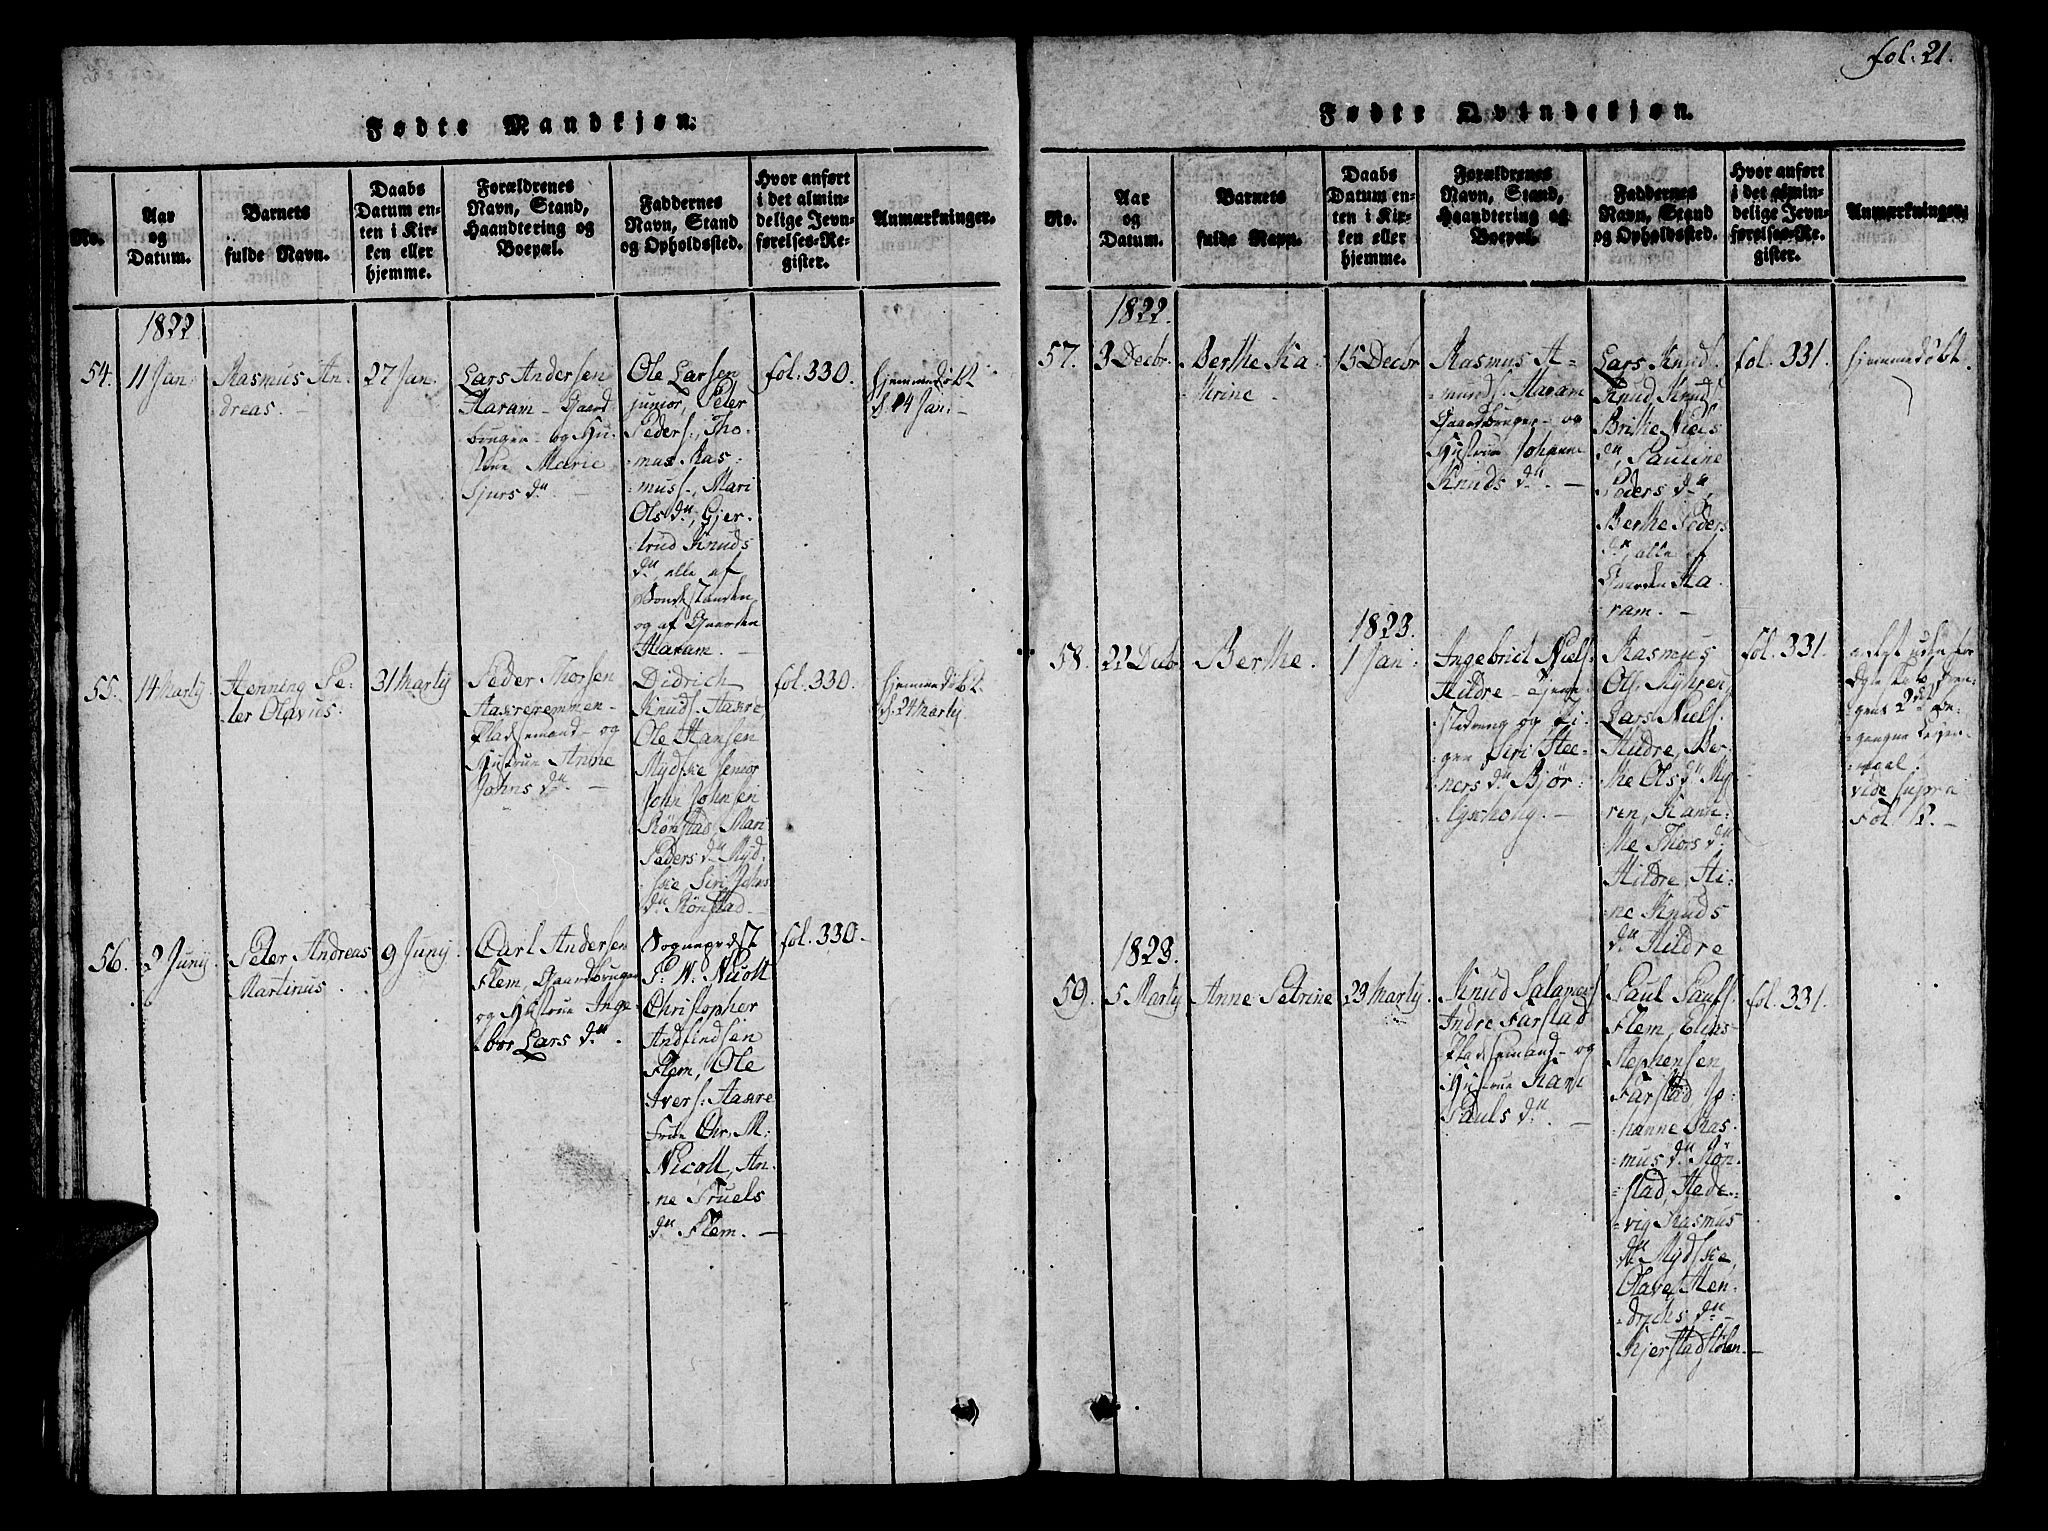 fol. 21.
Fødte Mandkjøn.
No.
Aar
og
Datum.
Barnets
fulde Navn.
Daabs
Datum en-
ten i Kir-
ken eller
hjemme.
Forældrenes
Navn, Stand,
Haandtering og
Boepæl.
Faddernes
Navn, Stand
og Opholdssted.
Hvor anført
i det almin-
delige Jevn-
førelses-Re-
gister.
Anmærkninger.
1822.
54.
11 Jan:
Rasmus An-
dreas. -
27 Jan.
Lars Andersen
Haram - Gaard
bruger - og Hu-
strue Marie
Sjurs dr. -
Ole Larsen
junior, Peter
Peders:, Tho-
mas Ras-
mus:, Mari
Ols dr, Gjer-
trud Knuds
dr, alle af
Bondestanden
og af Gaarden
Haram. -
fol. 330.
hjemmedøbt
d. 14 Jan. -
55.
14 Marty
Henning Pe-
ter Olavius.
31 Marty
Peder Thorsen
Aakreremmen -
Pladsemand - og
Hustrue Anne
Johns dr. -
Didrich
Knuds. Aakre
Ole Hansen
Mydske senior
John Johnsen
Rønstad, Mari
Peders dr Myd-
ske, Siri Johns
dr Rønstad -
fol. 330.
hjemmedøbt
d. 24 Marty
56.
2 Juny
Peter Andreas
Martinus.
9 Juny
Carl Andersen
Flem, Gaardbruger
og Hustrue Inge-
bor Lars dr.
Sognepræst
P. W. Nicoll
Christopher
Andfindsen
Flem, Ole
Ivers: Aakre
Frue Chr. M.
Nicoll, An-
ne Truels
dr Flem. -
fol. 330.
Fødte Qvindekjøn.
No.
Aar
og
Datum.
Barnets
fulde Navn.
Daabs
Datum en-
ten i Kir-
ken eller
hjemme.
Forældrenes
Navn, Stand,
Haandtering og
Boepæl.
Faddernes
Navn, Stand
og Opholdssted.
Hvor anført
i det almin-
delige Jevn-
førelses-Re-
gister.
Anmærkninger.
1822.
57.
3 Decbr.
Berthe Ka-
trine -
15 Decbr
Rasmus A-
munds. Haram
Gaardbruger - og
Hustrue Johanne
Knuds dr. -
Lars Knuds.
Knud Knuds.
Brithe Niels
dr, Pauline
Peders dr,
Berthe Peders
dr, alle af
Gaarden Ha-
ram. -
fol. 331.
hjemmedøbt.
58.
22 Decbr
Berthe.
1823.
1 Jan:
Ingebrict Niels.
Hildre - Tjene-
stedreng og Pi-
gen Siri Stee-
ners dr Bjør-
Rasmus
Ols. Myhren,
Lars Niels.
Hildre, Ber-
the Ols dr My-
ren, Kane-
the Thors dr
Hildre, Ha-
ne Knuds
dr Hildre
fol. 331.
ægte udenfor
gens 2den be-
gangne Leier-
maal.
vide supra
fol. 12. -
1823.
59.
5 Marty
Anne Petrine
23 Marty.
Knud Salamons.
Indre Farstad
Pladsemand - og
Hustrue Kari
Pauls dr. -
Paul Pauls.
Flem, Elias
Stephensen
Farstad, Jo-
hanne Ras-
mus dr Røn-
stad, Hede-
vig Rasmus
dr Mydske,
Olave Hen-
drichs dr
Kjerstadstølen. -
fol. 331.